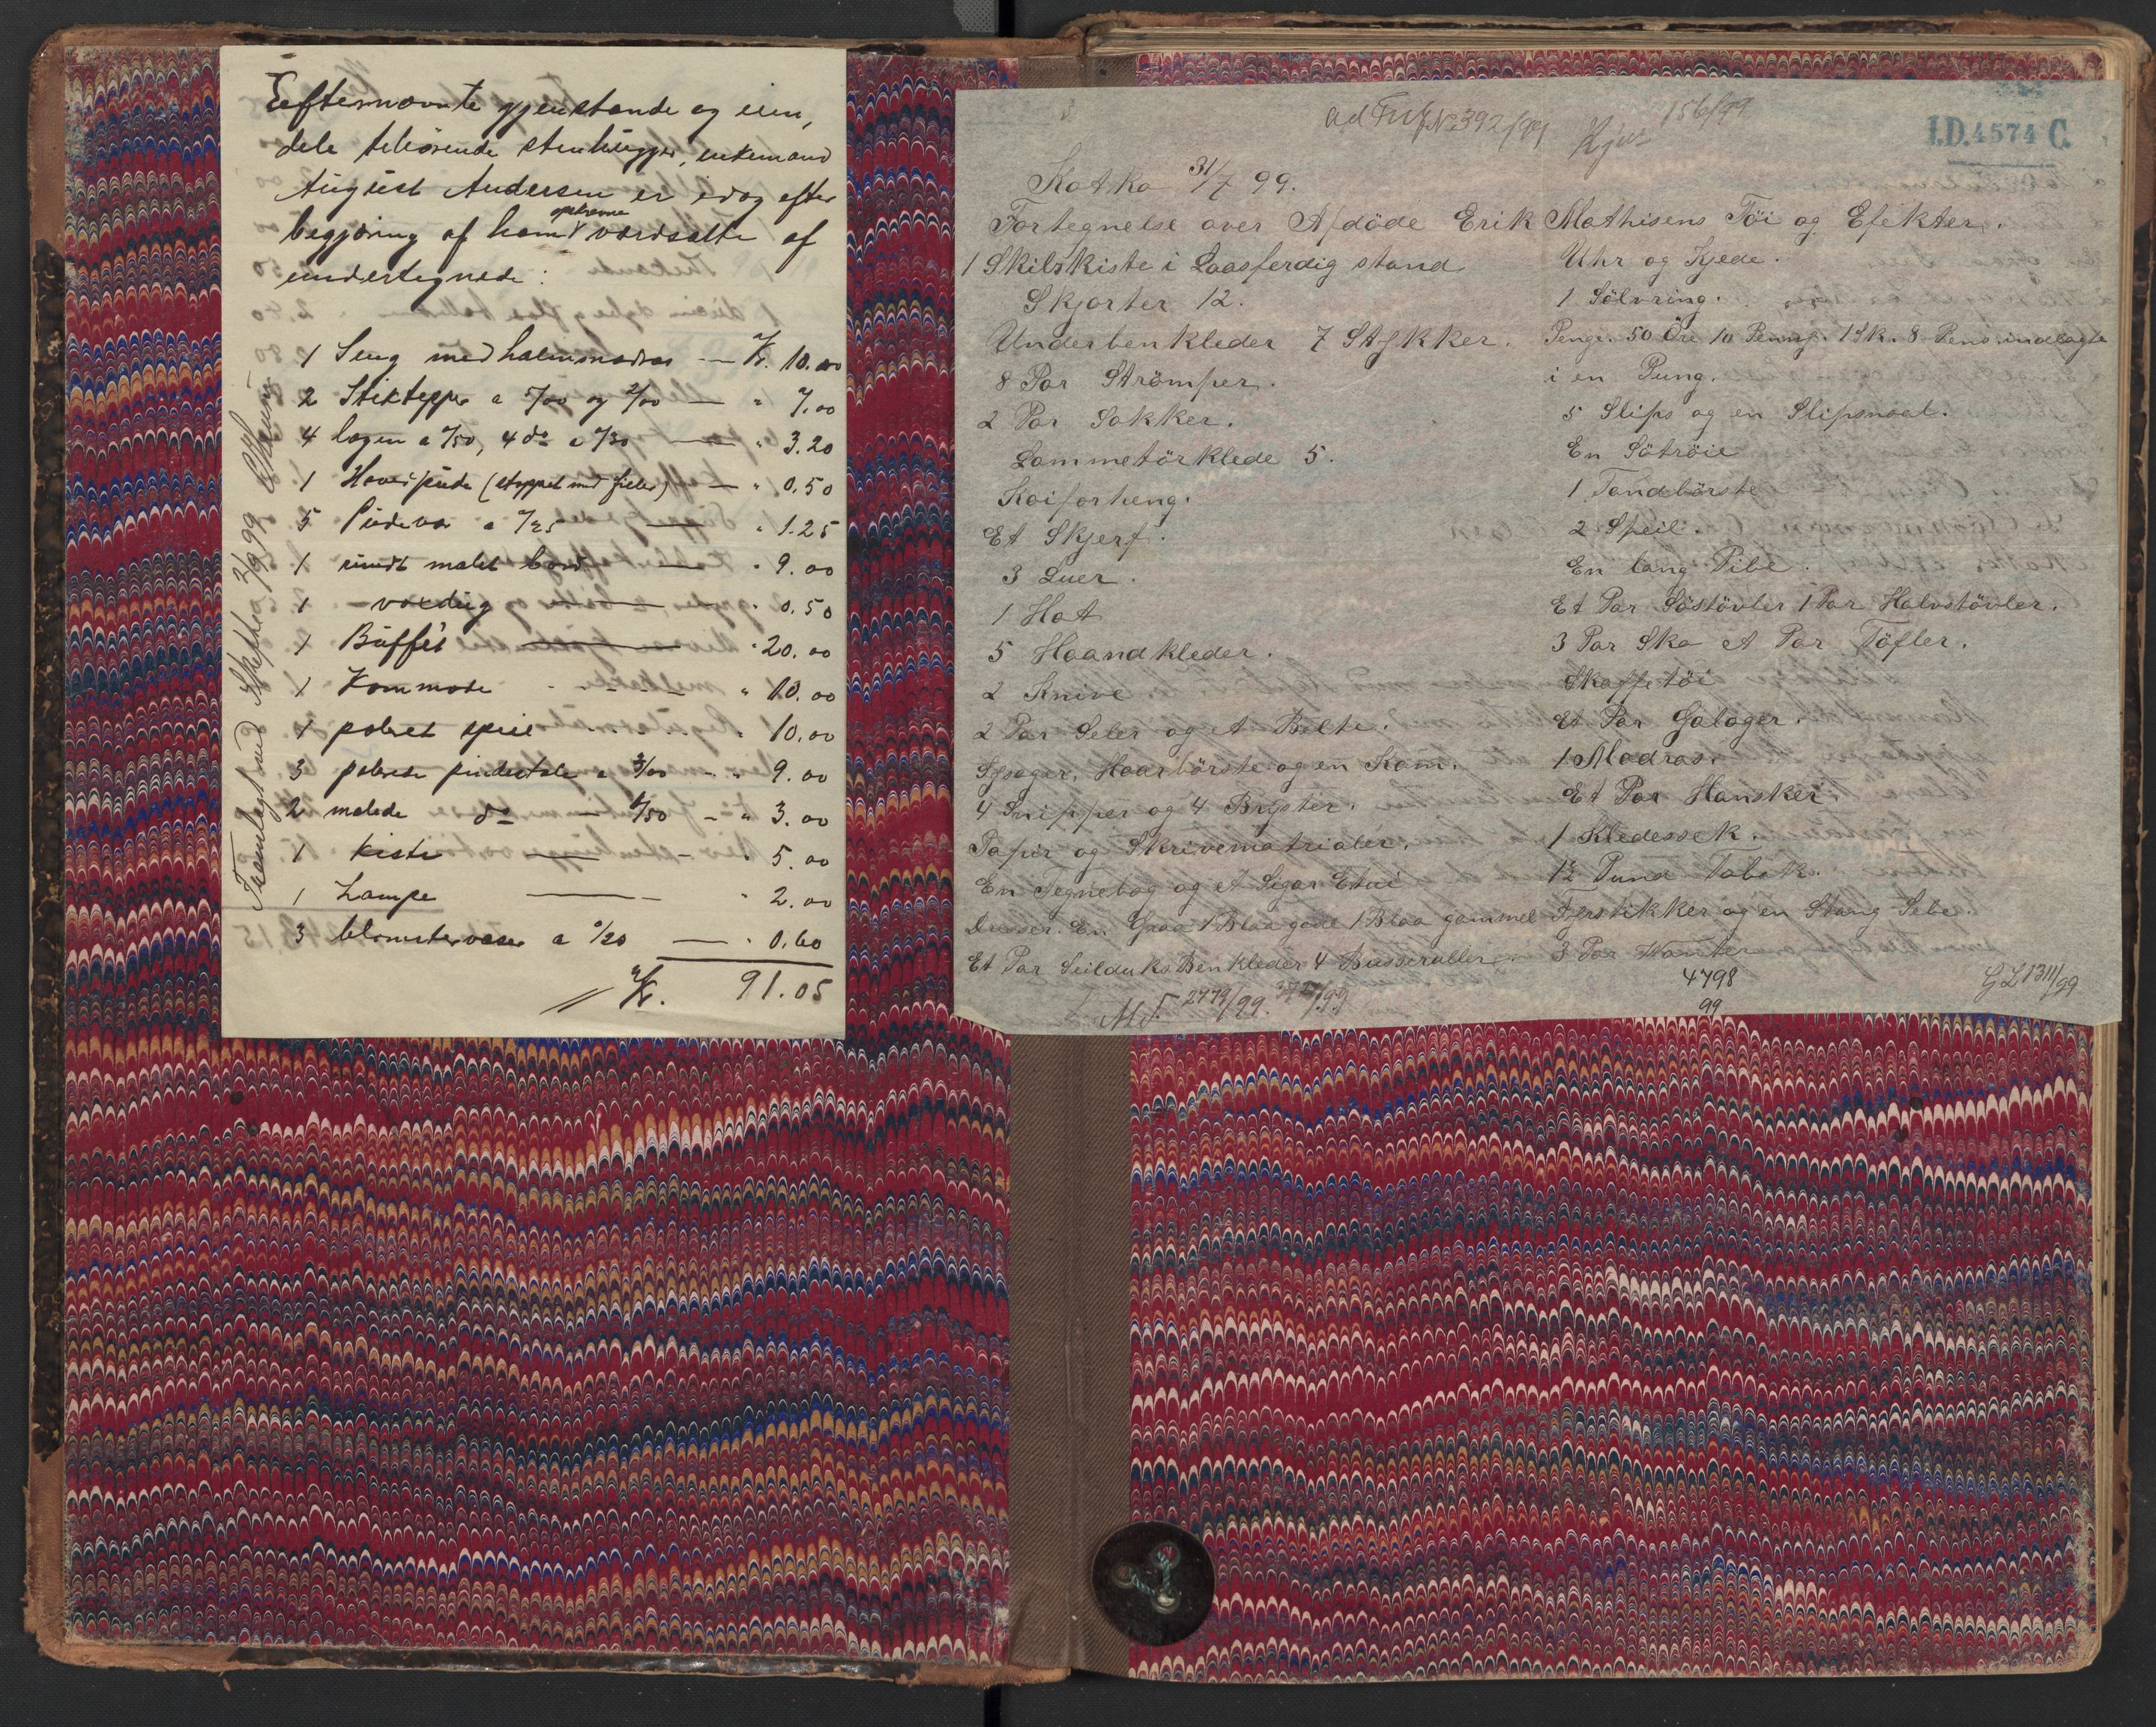 Eefternævnte gjenstande og eien,
dele tilhørende stenhugger, enkemand
August Andersen er idag efter
begjæring af ham opskrevne værdsatte af
undertegnede:
1 Seng med halmmadras — Kr. 10.00
2 Stiktepper a 5/00 og 2/00 — " 7.00
4 lagen a 0/50, 4 do a 0/30 — " 3.20
1 Hovedpude (stoppet med fieler) — " 0.50
5 Pudevar a 0/25 — " 1.25
1 rundt malet bord — " 9.00
1 voxdug — " 0.50
1 Buffét — " 20.00
1 Kommode - - - " 10.00
1 poleret speil . . . " 10.00
3 polerede pindestole a 3/00 - " 9.00
2 malede do — 1/50 - " 3.00
1 kiste — - " 5.00
1 Lampe — " 2.00
3 blomstervaser a 0/20 — " 0.60
Kr. 91.05
Fremlagt ved Skifte
ad No 392/99
156/99
I.D. 4574 C.
Kotka 31/7 99.
Fortegnelse over Afdöde Erik Mathisens Töi og Efekter.
1 Skibskiste i Laasferdig stand
Skjorter 12.
Underbenkleder 7 Stykker.
8 Par Strömper.
2 Par Sokker.
Lommetörklede 5.
Koiforheng.
Et Skjerf.
3 Luer.
1 Hat
5 Haandkleder.
2 Knive
2 Par Seler og et Belte.
Sysager, Haarbörste og en Kam.
4 Snipper og 4 Bryster.
Papir og Skrivematrialer.
En Tegnebog og et Sigar Etui
Dresser. En Graa 1 Blaa gode 1 Blaa gammel
Et Par Seilduks Benkleder 4 Busseruller
Uhr og Kjede.
1 Sölvring.
Penge. 50 Öre 10 Penny. 1 Sk. 8 Pens indlagte
i en Pung.
5 Slips og en Slipsnaal.
En Sötröie
1 Tandbörste
2 Speil.
En lang Pibe.
Et Par Söstövler 1 Par Halvstövler.
3 Par Sko et Par Töfler.
Skaffetöi
Et Par Galoger.
1 Madras.
Et Par Hansker.
1 Kledessek.
1½ Pund Tabak.
Fyrstikker og en Stang Sebe.
3 Par Wanter
4798
99
M.F. 2779/99.
G.L 1311/99